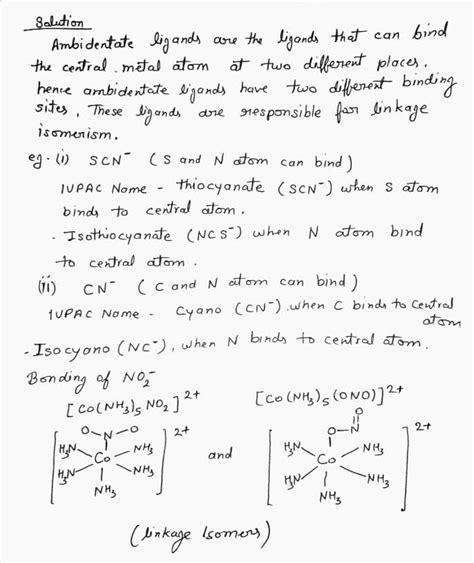 Solution
Ambidentate ligands are the ligands that can bind
the central metal atom at two different places.
hence ambidentate ligands have two different binding
sites, These ligands are responsible for linkage
isomerism.
eg. (i) SCN⁻ (S and N atom can bind)
IUPAC Name - thiocyanate (SCN⁻) when S atom
binds to central atom.
. Isothiocyanate (NCS⁻) when N atom bind
to central atom.
(ii) CN⁻ (C and N atom can bind)
IUPAC Name - Cyano (CN⁻). when C binds to Central
atom
- Isocyano (NC⁻), when N binds to central atom.
Bonding of NO₂⁻
[Co(NH₃)₅ NO₂]²⁺ [Co(NH₃)₅(ONO)]²⁺
O N O 2+ O
O-N 2+
H₃N NH₃ H₃N NH₃
Co and Co
H₃N NH₃ H₃N NH₃
NH₃ NH₃
(linkage Isomers)